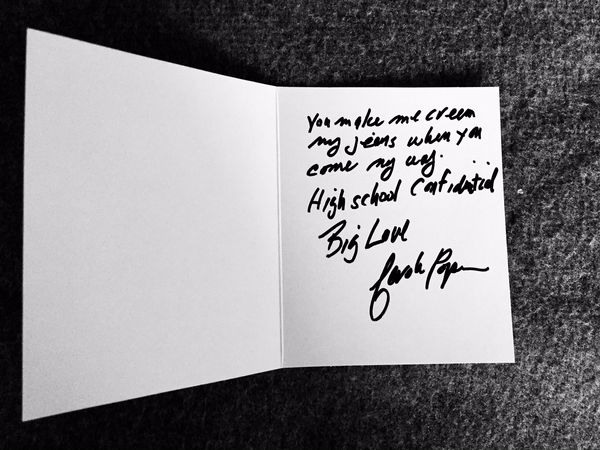 You make me cream
my jeans when you
come my way.
High school Confidential
Big Love
Carole Pope